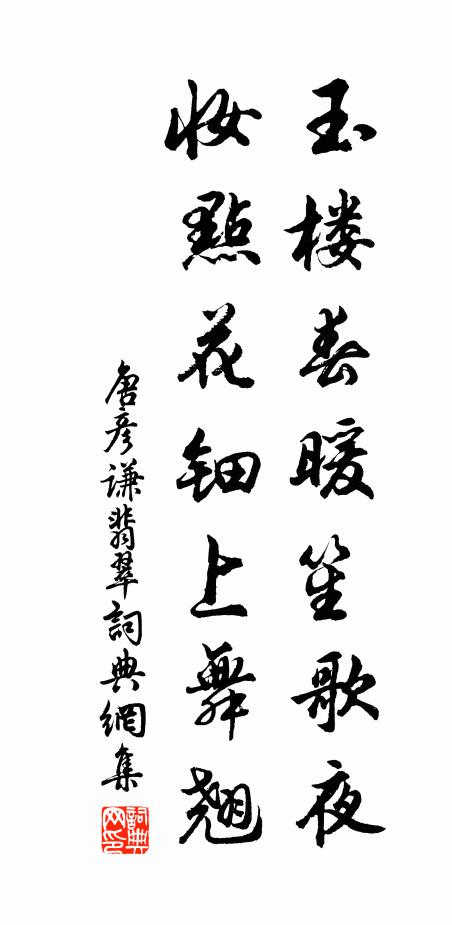 玉楼春暖笙歌夜
妆點花钿上舞翘
唐彦谦翡翠詞典網集
詞典網印